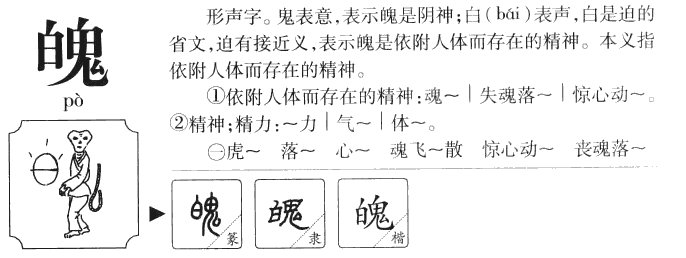 魄
pò
形声字。鬼表意,表示魄是阴神;白(bái)表声,白是迫的
省文,迫有接近义,表示魄是依附人体而存在的精神。本义指
依附人体而存在的精神。
①依附人体而存在的精神:魂～｜失魂落～｜惊心动～。
②精神;精力:～力｜气～｜体～。
㊀虎～ 落～ 心～ 魂飞～散 惊心动～ 丧魂落～
魄 篆
魄 隶
魄 楷